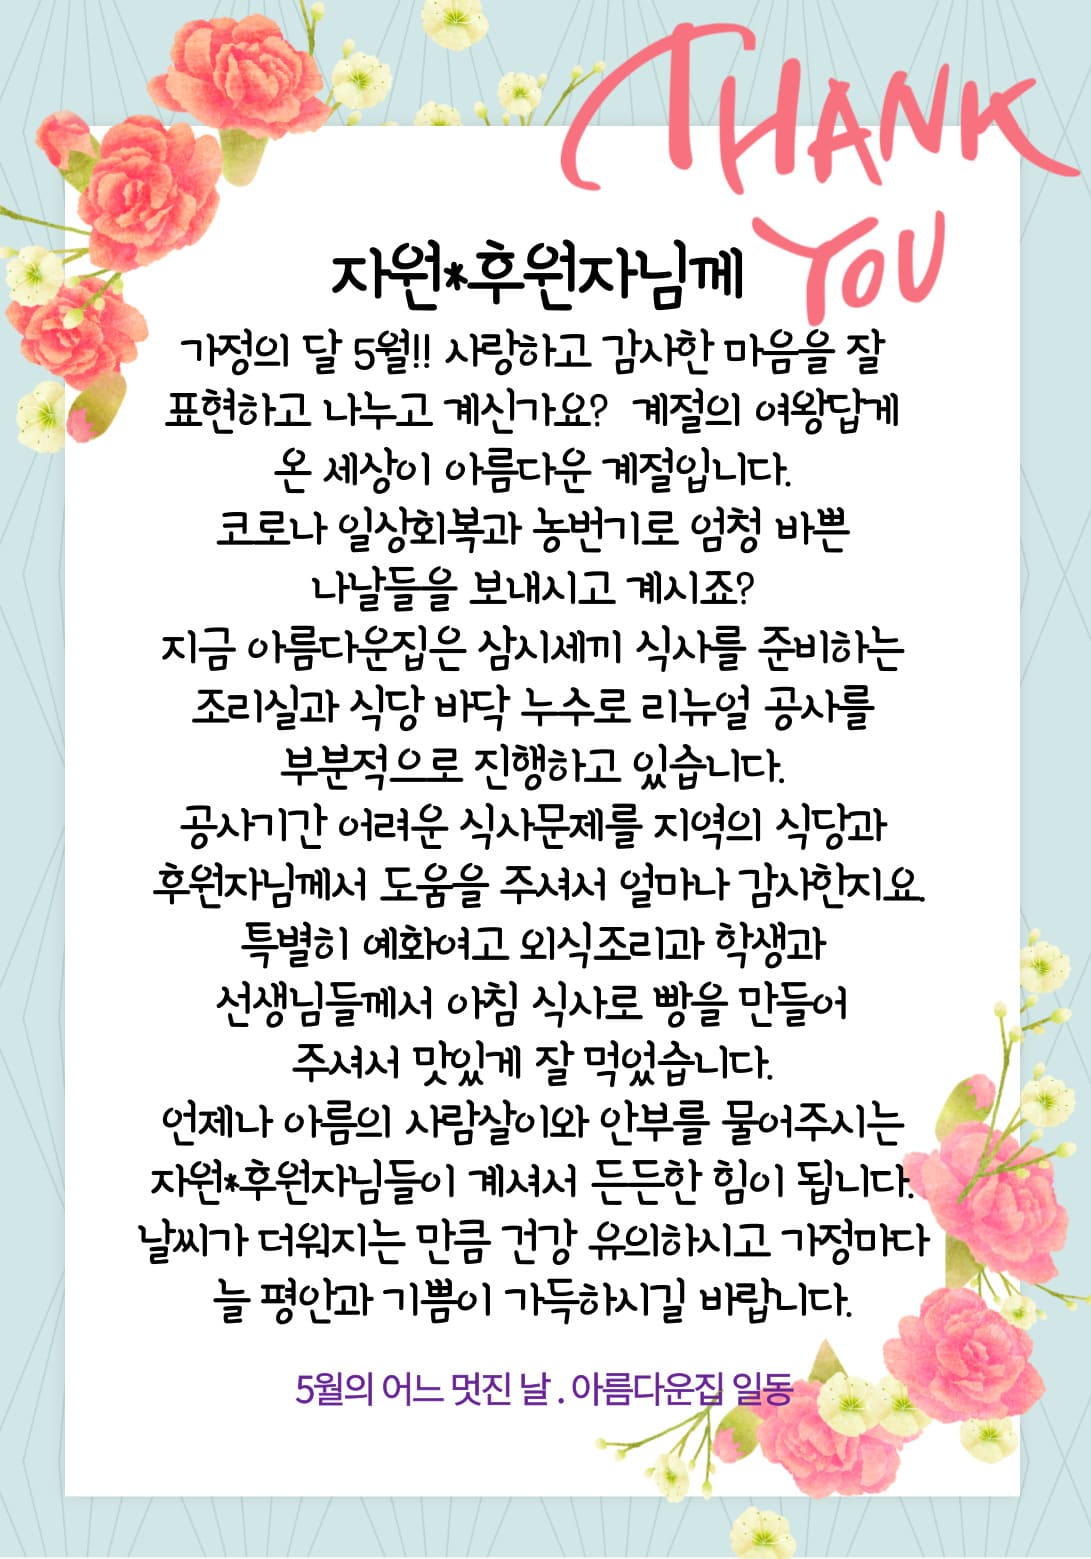 THANK
YOU
자원*후원자님께
가정의 달 5월!! 사랑하고 감사한 마음을 잘
표현하고 나누고 계신가요? 계절의 여왕답게
온 세상이 아름다운 계절입니다.
코로나 일상회복과 농번기로 엄청 바쁜
나날들을 보내시고 계시죠?
지금 아름다운집은 삼시세끼 식사를 준비하는
조리실과 식당 바닥 누수로 리뉴얼 공사를
부분적으로 진행하고 있습니다.
공사기간 어려운 식사문제를 지역의 식당과
후원자님께서 도움을 주셔서 얼마나 감사한지요.
특별히 예화여고 외식조리과 학생과
선생님들께서 아침 식사로 빵을 만들어
주셔서 맛있게 잘 먹었습니다.
언제나 아름의 사람살이와 안부를 물어주시는
자원*후원자님들이 계셔서 든든한 힘이 됩니다.
날씨가 더워지는 만큼 건강 유의하시고 가정마다
늘 평안과 기쁨이 가득하시길 바랍니다.
5월의 어느 멋진 날 . 아름다운집 일동